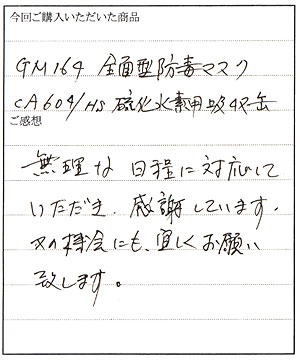 今回ご購入いただいた商品
GM164 全面型防毒マスク
CA604/HS 硫化水素用吸収缶
ご感想
無理な日程に対応して
いただき、感謝しています。
又の機会にも、宜しくお願い
致します。